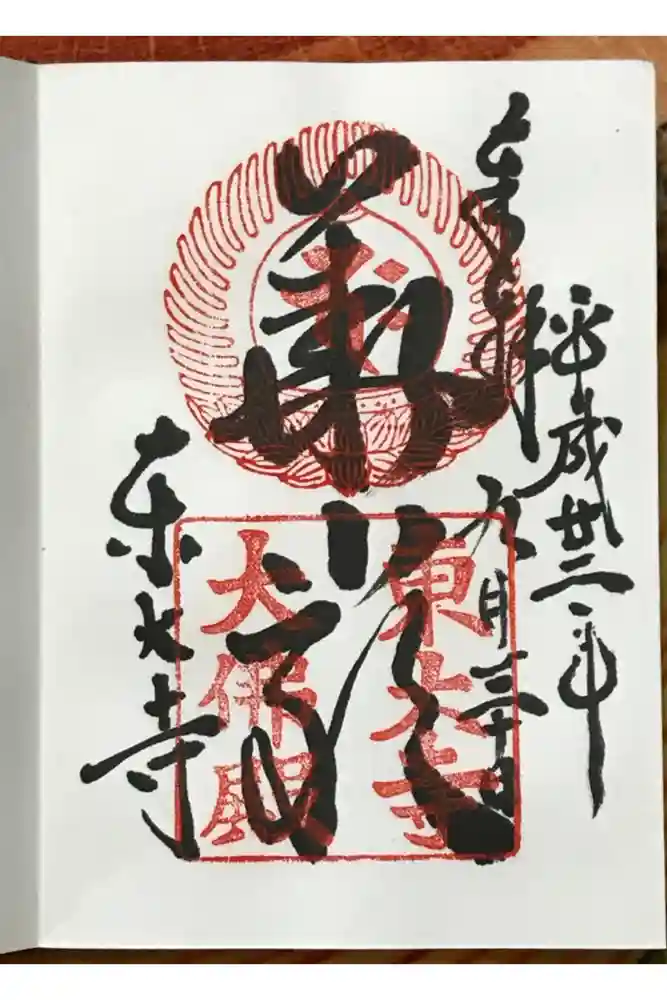 奉拝
平成廿二年
九月三十日
華厳
東大寺
東大寺
大佛殿